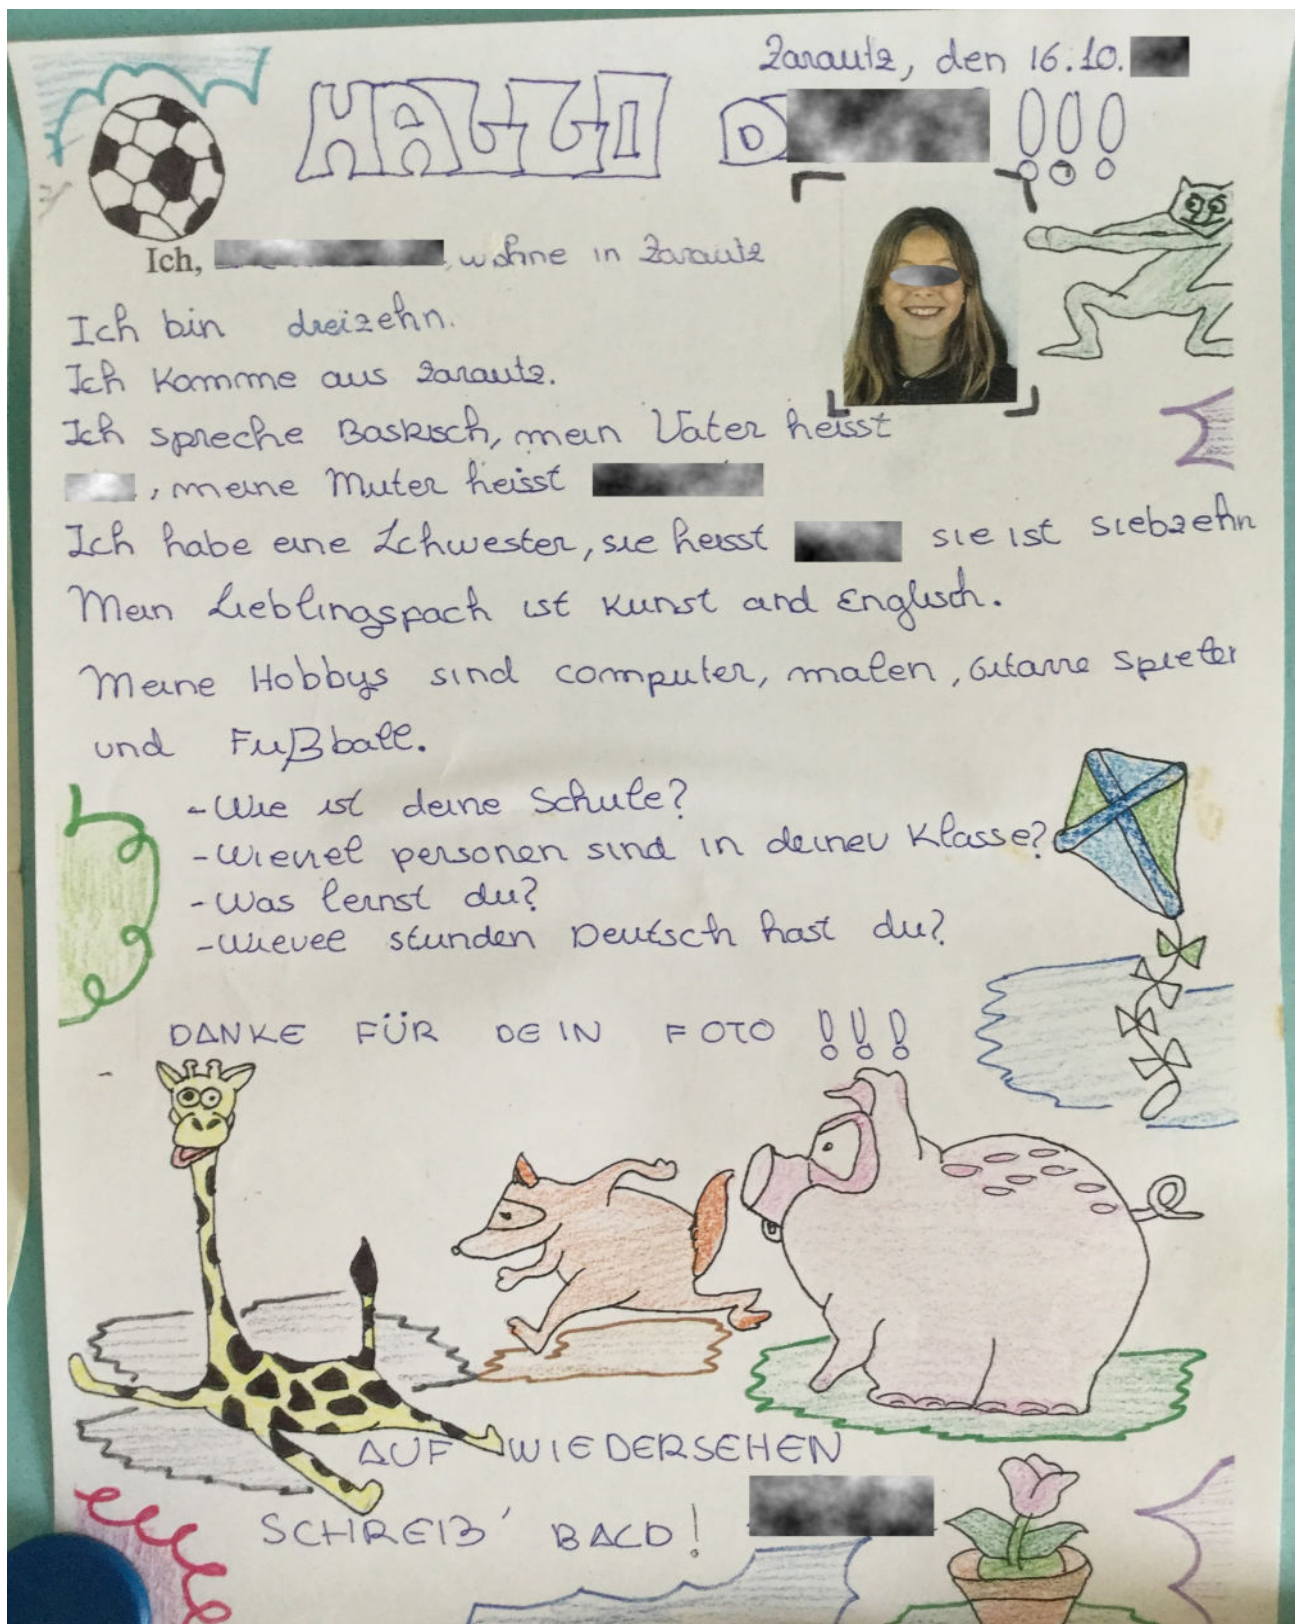 Zarautz, den 16.10.
HALLO D !!!
Ich, , wohne in Zarautz
Ich bin dreizehn.
Ich Komme aus Zarautz.
Ich spreche Baskisch, mein Vater heisst
, meine Muter heisst
Ich habe eine Schwester, sie heisst sie ist siebzehn
Mein Lieblingspach ist Kunst and Englisch.
Meine Hobbys sind computer, malen, Gitarre spieler
und Fußball.
- Wie ist deine Schule?
- Wieviel personen sind in deiner Klasse?
- Was lernst du?
- Wievel stunden Deutsch hast du?
DANKE FÜR DEIN FOTO !!!
AUF WIEDERSEHEN
SCHREIB' BALD!